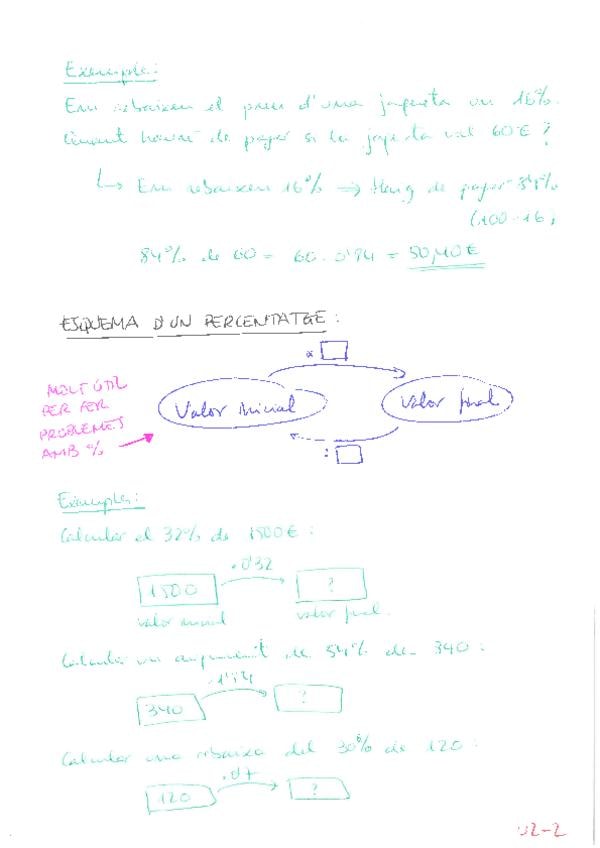 Exemple:
Em rebaixen el preu d'una jaqueta un 16%.
Quant hauré de pagar si la jaqueta val 60€?
↳ Em rebaixen 16% ⇒ Haig de pagar 84%
(100-16)
84% de 60 = 60 · 0'84 = 50,40€
ESQUEMA D'UN PERCENTATGE:
MOLT ÚTIL
PER FER
PROBLEMES
AMB %
Valor inicial
Valor final
:
Exemples:
Calcular el 32% de 1500€:
·0'32
1500
?
valor inicial
valor final.
Calcular un augment de 54% de 340:
·1'54
340
?
Calcular una rebaixa del 30% de 120:
·0'7
120
?
U2-2